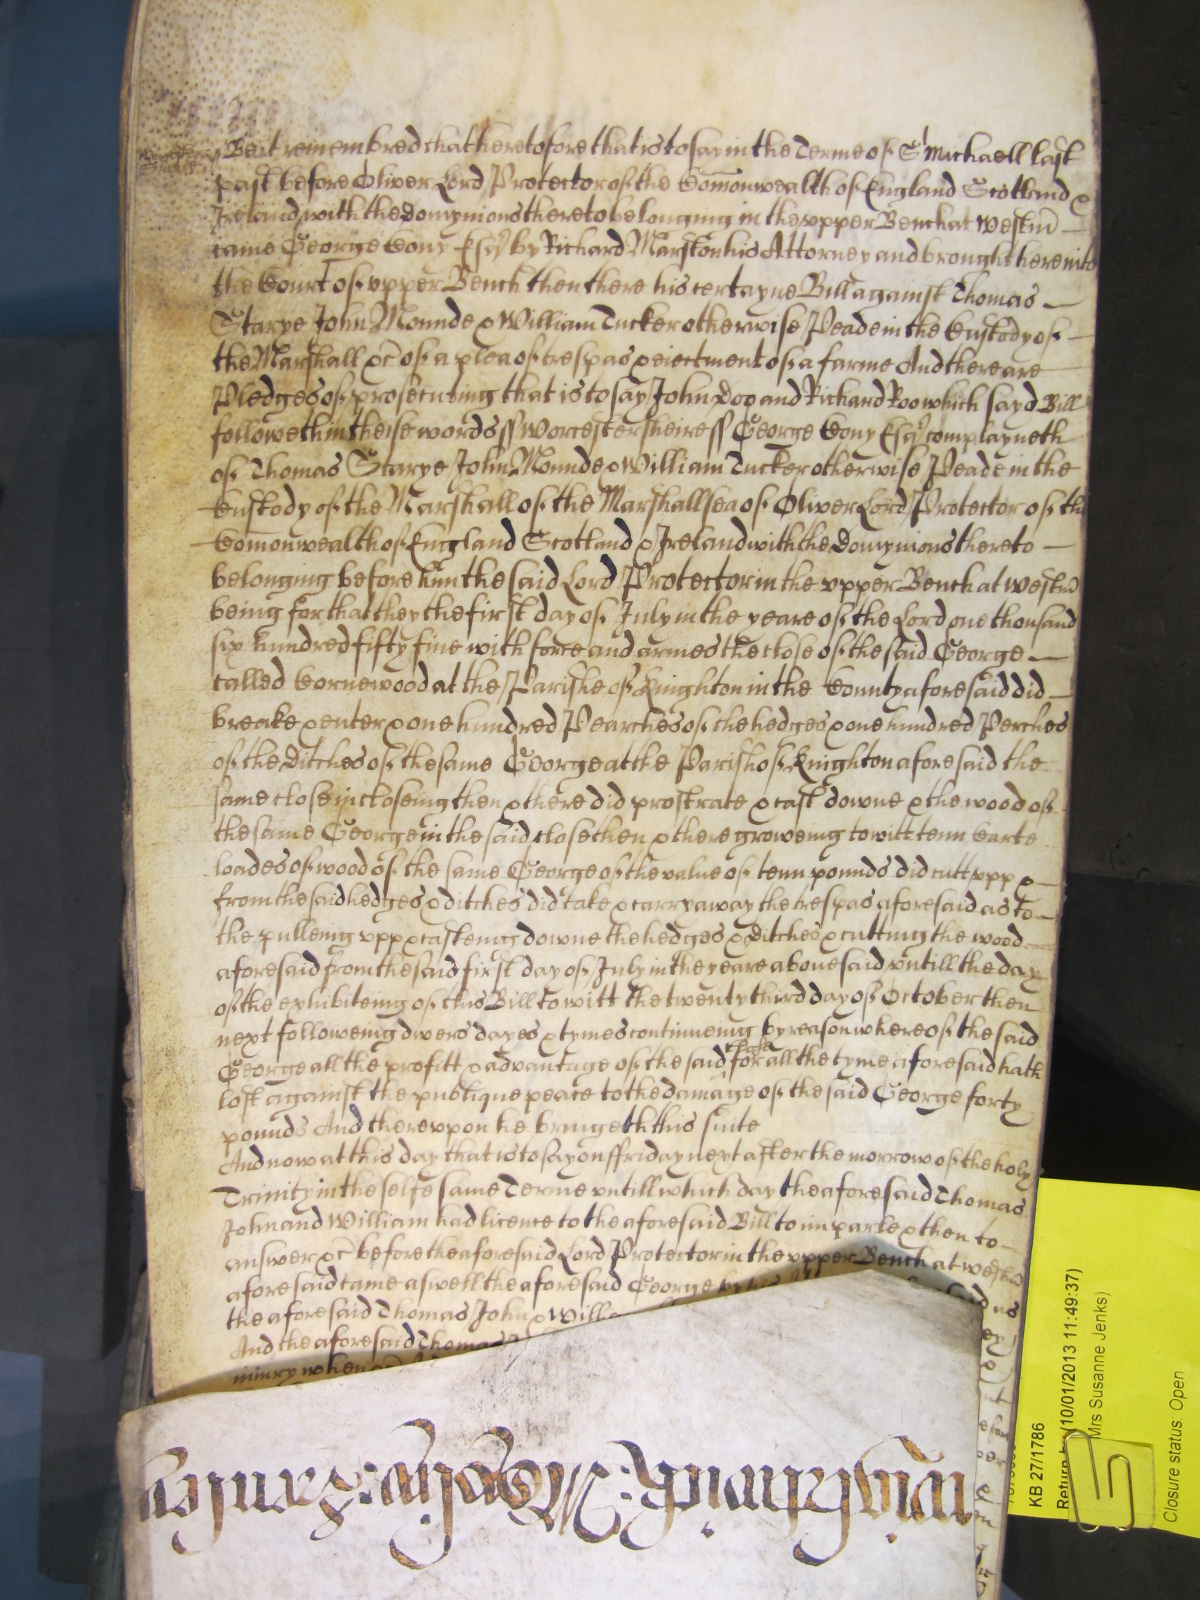 Be it remembred that heretofore that is to say in the Terme of St Michaell last
past before Oliver Lord Protector of the Comonwealth of England Scotland &
Ireland with the domynions thereto belonging in the vpper Bench at Westm
came George Cony Esqr by Richard Marston his Attorney and brought here into
the Court of vpper Bench then there his certayne Bill against Thomas
Starye John Mounde & William Tucker otherwise Peade in the Custody of
the Marshall &c of a plea of trespas & eiectment of a farme And there are
Pledges of prosecuting that is to say John Doo and Richard Roo which sayd Bill
followeth in theise words ss Worcestersheire ss George Cony Esqr complayneth
of Thomas Starye John Mounde & William Tucker otherwise Peade in the
Custody of the Marshall of the Marshallsea of Oliver Lord Protector of the
Comonwealth of England Scotland & Ireland with the Domynions thereto
belonging before him the said Lord Protector in the vpper Bench at Westm
being for that they the first day of July in the yeare of the Lord one thousand
six hundred fifty five with force and armes the close of the said George
called Cornewood at the Parishe of Knighton in the County aforesaid did
breake & enter & one hundred Pearches of the hedges & one hundred Perches
of the Ditches of the same George at the Parish of Knighton aforesaid the
same close incloseing then & there did prostrate & cast downe & the wood of
the same George in the said close then & there groweing to witt tenn Carte
loades of wood of the same George of the value of tenn pounds did cutt vpp &
from the said hedges & ditches did take & carry away the trespas aforesaid as to
the pulleing vpp & casteing downe the hedges & Ditches & cutting the wood
aforesaid from the said first day of July in the yeare abouesaid vntill the day
of the exhibiteing of this Bill to witt the twenty third day of October then
next followeing divers dayes & tymes continueing by reason whereof the said
George all the profitt & advantage of the said close for all the tyme aforesaid hath
lost against the publique peace to the damage of the said George forty
pounds And therevpon he bringeth this suite
And now at this day that is to say on ffriday next after the morrow of the holy
Trinity in the selfe same Terme vntill which day the aforesaid Thomas
John and William had licence to the aforesaid Bill to imparle & then to
answer &c before the aforesaid Lord Protector in the vpper Bench at Westm
aforesaid came aswell the aforesaid George by his
the aforesaid Thomas John & Will
And the aforesaid Thomas
iniury when
KB 27/1786
Return by (10/01/2013 11:49:37)
Mrs Susanne Jenks)
Closure status: Open